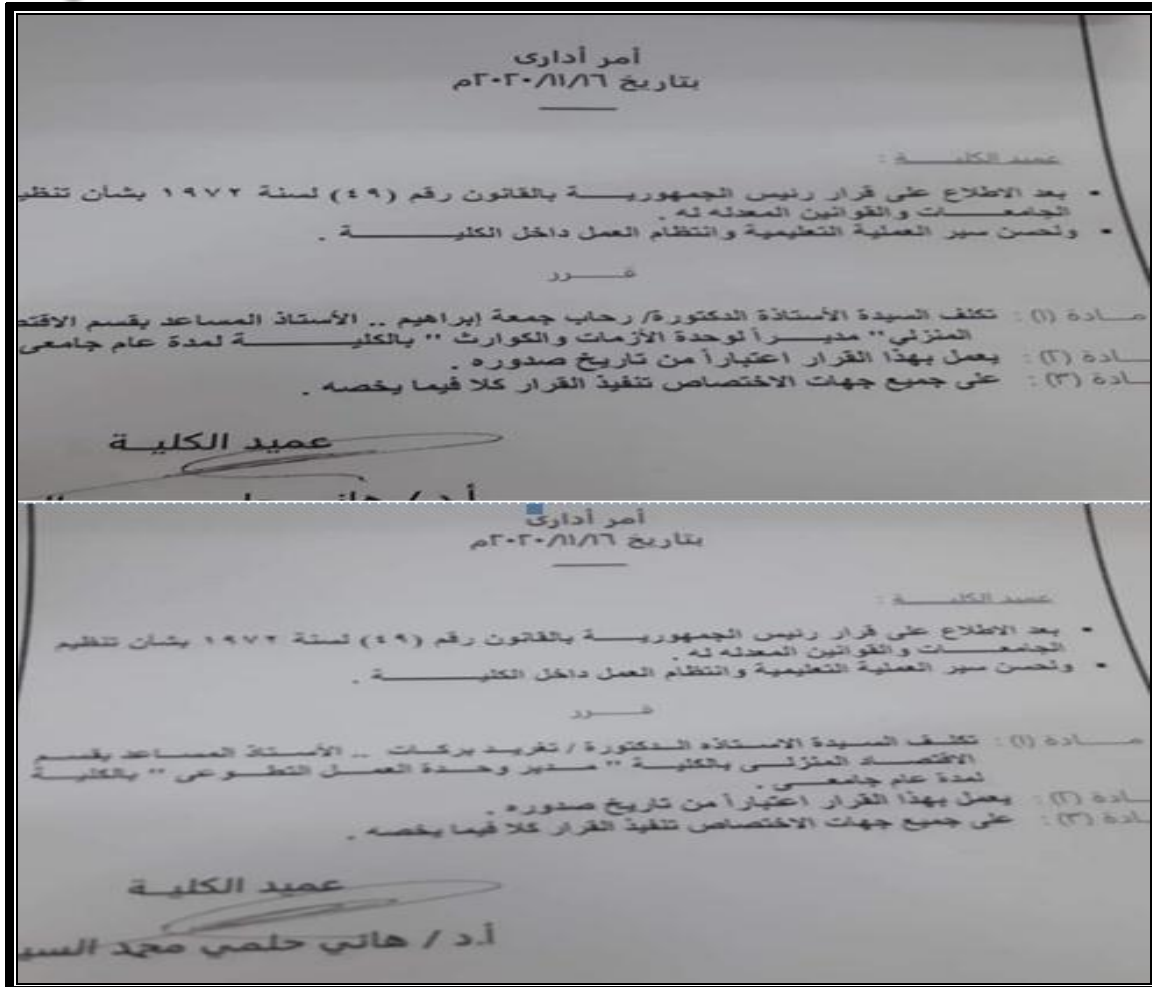 أمر أدارى
بتاريخ ٢٠٢٠/١١/١٦م
عميد الكليــــة :
• بعد الاطلاع على قرار رئيس الجمهوريــــة بالقانون رقم (٤٩) لسنة ١٩٧٢ بشأن تنظي
الجامعــــات والقوانين المعدله له .
• ولحسن سير العملية التعليمية وانتظام العمل داخل الكليــــة .
قــــرر
مــادة (١) : تكلف السيدة الأستاذة الدكتورة/ رحاب جمعة إبراهيم .. الأستاذ المساعد بقسم الاقتص
المنزلي" مديــراً لوحدة الأزمات والكوارث " بالكليــــة لمدة عام جامعى
ــادة (٢) : يعمل بهذا القرار اعتباراً من تاريخ صدوره .
ــادة (٣) : على جميع جهات الاختصاص تنفيذ القرار كلا فيما يخصه .
عميد الكليــة
أ.د / هاني
أمر أدارى
بتاريخ ٢٠٢٠/١١/١٦م
عميد الكليــــة :
• بعد الاطلاع على قرار رئيس الجمهوريــــة بالقانون رقم (٤٩) لسنة ١٩٧٢ بشأن تنظيم
الجامعــــات والقوانين المعدله له .
• ولحسن سير العملية التعليمية وانتظام العمل داخل الكليــــة .
قــــرر
مــادة (١) : تكلـف السـيدة الاسـتاذه الـدكتورة / تغريـد بركـات .. الأسـتاذ المسـاعد بقسـم
الاقتصـاد المنزلـى بالكليـة " مـدير وحـدة العمـل التطـوعى " بالكليـة
لمدة عام جامعــى .
ــادة (٢) : يعمل بهذا القرار اعتباراً من تاريخ صدوره .
ــادة (٣) : على جميع جهات الاختصاص تنفيذ القرار كلا فيما يخصه .
عميد الكليــة
أ.د / هاني حلمي محمد السي